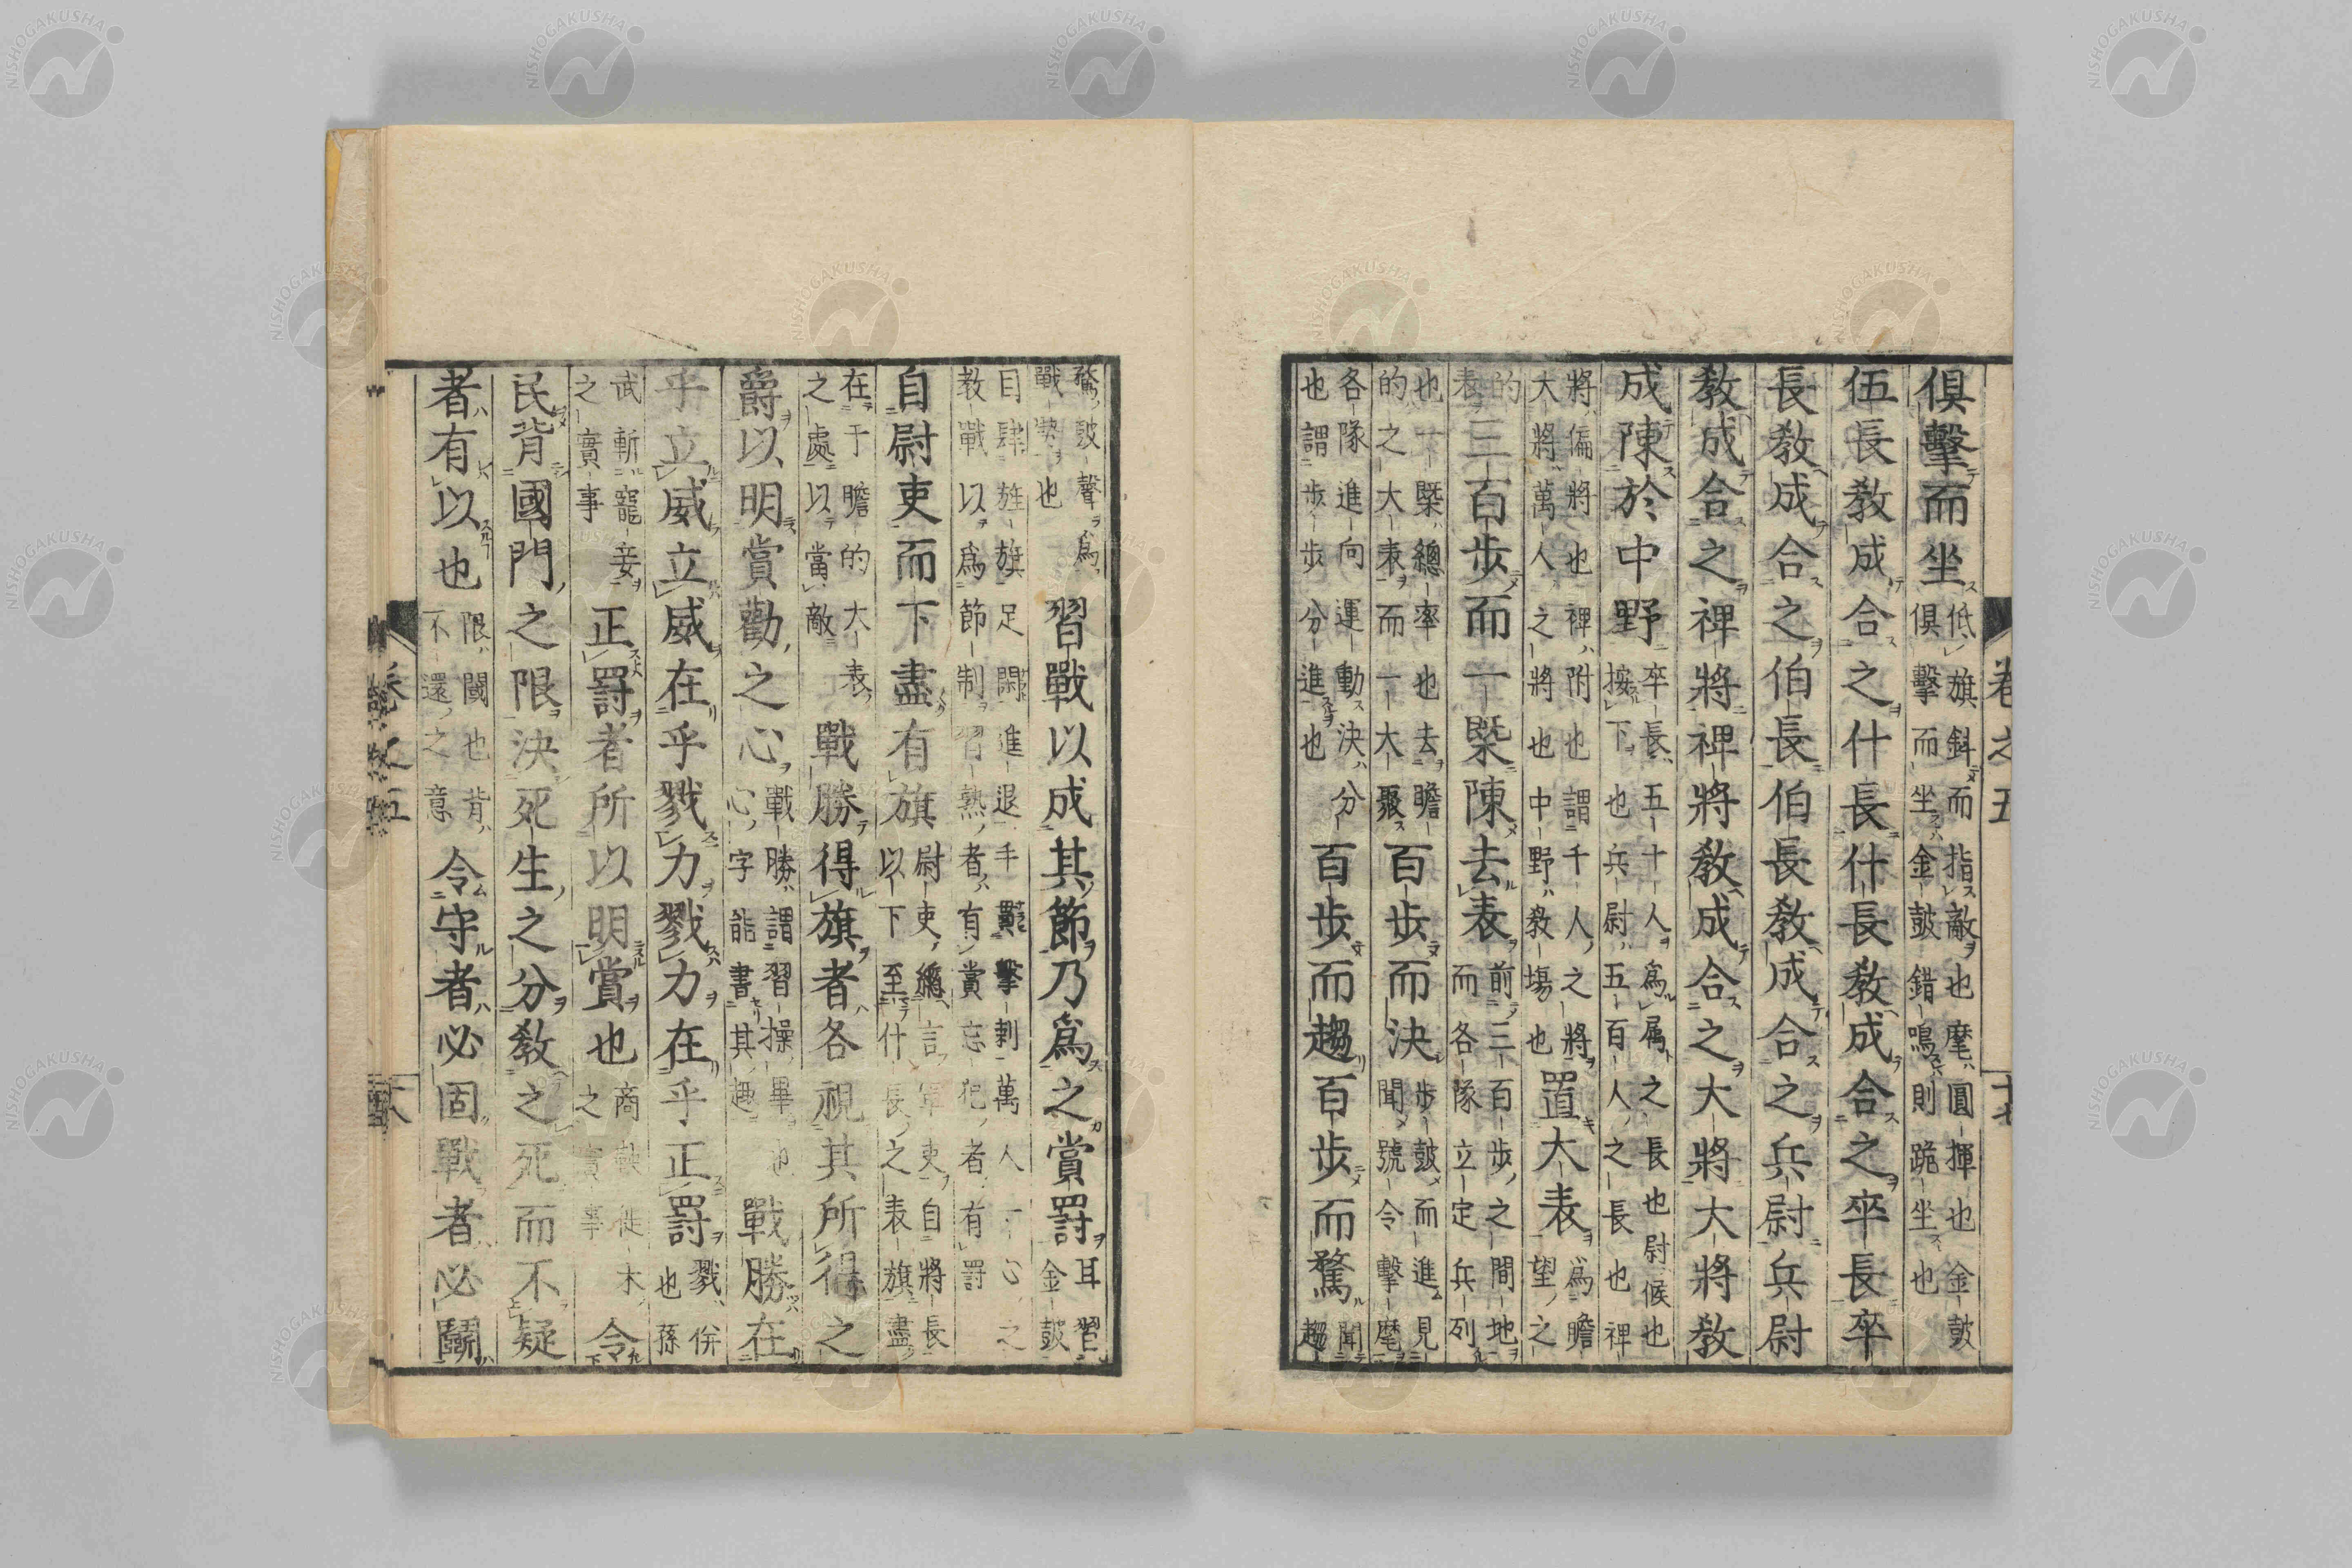 卷之五
十七
俱擊而坐低旗斜而指敵也麾圓揮也金鼓
俱擊而坐金鼓錯鳴則跪坐也
伍長教成合之什長什長教成合之卒長卒
長教成合之伯長伯長教成合之兵尉兵尉
教成合之裨將裨將教成合之大將大將教
成陳於中野卒長五十人爲屬之長也尉候也
按下也兵尉五百人之長也裨
將偏將也裨附也謂千人之將
大將萬人之將也中野教塲也置大表爲瞻
望之
的
表三百步而一槩陳去表前三百步之間地
而各隊立定兵列
也一槩總率也去瞻
的之大表而一大聚百步而決步鼓而進見
聞號令擊麾
各隊進向運動決分
也謂步步分進也百步而趨百步而驁聞
趨
驁鼓聲爲
戰勢也習戰以成其節乃爲之賞罰耳習
金鼓
目肄旌旗足閑進退手貫擊刺萬人一心之
教戰以爲節制習熟者有賞忘犯者有罰
自尉吏而下盡有旗尉吏總言軍吏自將長
以下至什長之表旗盡
在于瞻的大表
之處以當敵戰勝得旗者各視其所得之
爵以明賞勸之心戰勝謂習操畢也
心字能書其趣戰勝在
乎立威立威在乎戮力戮力在乎正罰戮併
也孫
武斬寵妾
之實事正罰者所以明賞也商鞅徙木
之實事令
民背國門之限決死生之分教之死而不疑
者有以也限閾也背
不還之意令守者必固戰者必鬭
卷之五
十八
NISHOGAKUSHA